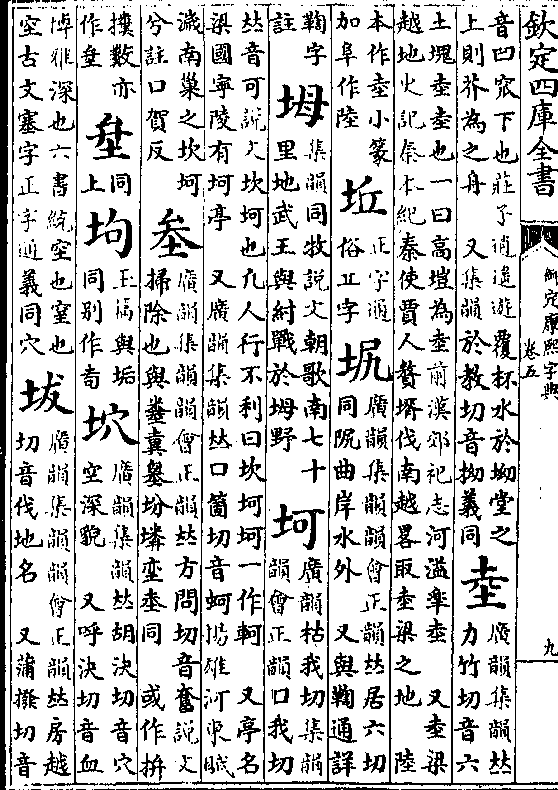 欽定四庫全書
御定康熙字典
卷五
九
音凹窊下也莊子逍遙遊覆杯水於坳堂之
上則芥為之舟　又集韻於教切音拗義同
坴
廣韻集韻𠀤
力竹切音六
土塊坴坴也一曰高塏為坴前漢郊祀志河溢臯坴　又坴梁
越地史記秦本紀秦使賈人贅壻伐南越畧取坴梁之地　陸
本作坴小篆
加阜作陸
坵
正字通
俗丘字
㘲
廣韻集韻韻會正韻𠀤居六切
同曲岸水外　又與鞫通詳
鞫字
註
坶
集韻同牧說文朝歌南七十
里地武王與紂戰於坶野
坷
廣韻枯我切集韻
韻會正韻口我切
𠀤音可說文坎坷也凢人行不利曰坎坷坷一作軻　又亭名
梁國寧陵有坷亭　又廣韻集韻𠀤口箇切音蚵揚雄河東賦
濊南巢之坎坷
兮註口賀反
廣韻集韻韻會正韻𠀤方問切音奮說文
掃除也與同　或作拚
數亦
作
同
上
坸
玉篇與垢
同別作耇
坹
廣韻集韻𠀤胡決切音穴
空深貌　又呼決切音血
博雅深也六書統空也窒也
空古文塞字正字通義同穴
坺
廣韻集韻韻會正韻𠀤房越
切音伐地名　又蒲撥切音